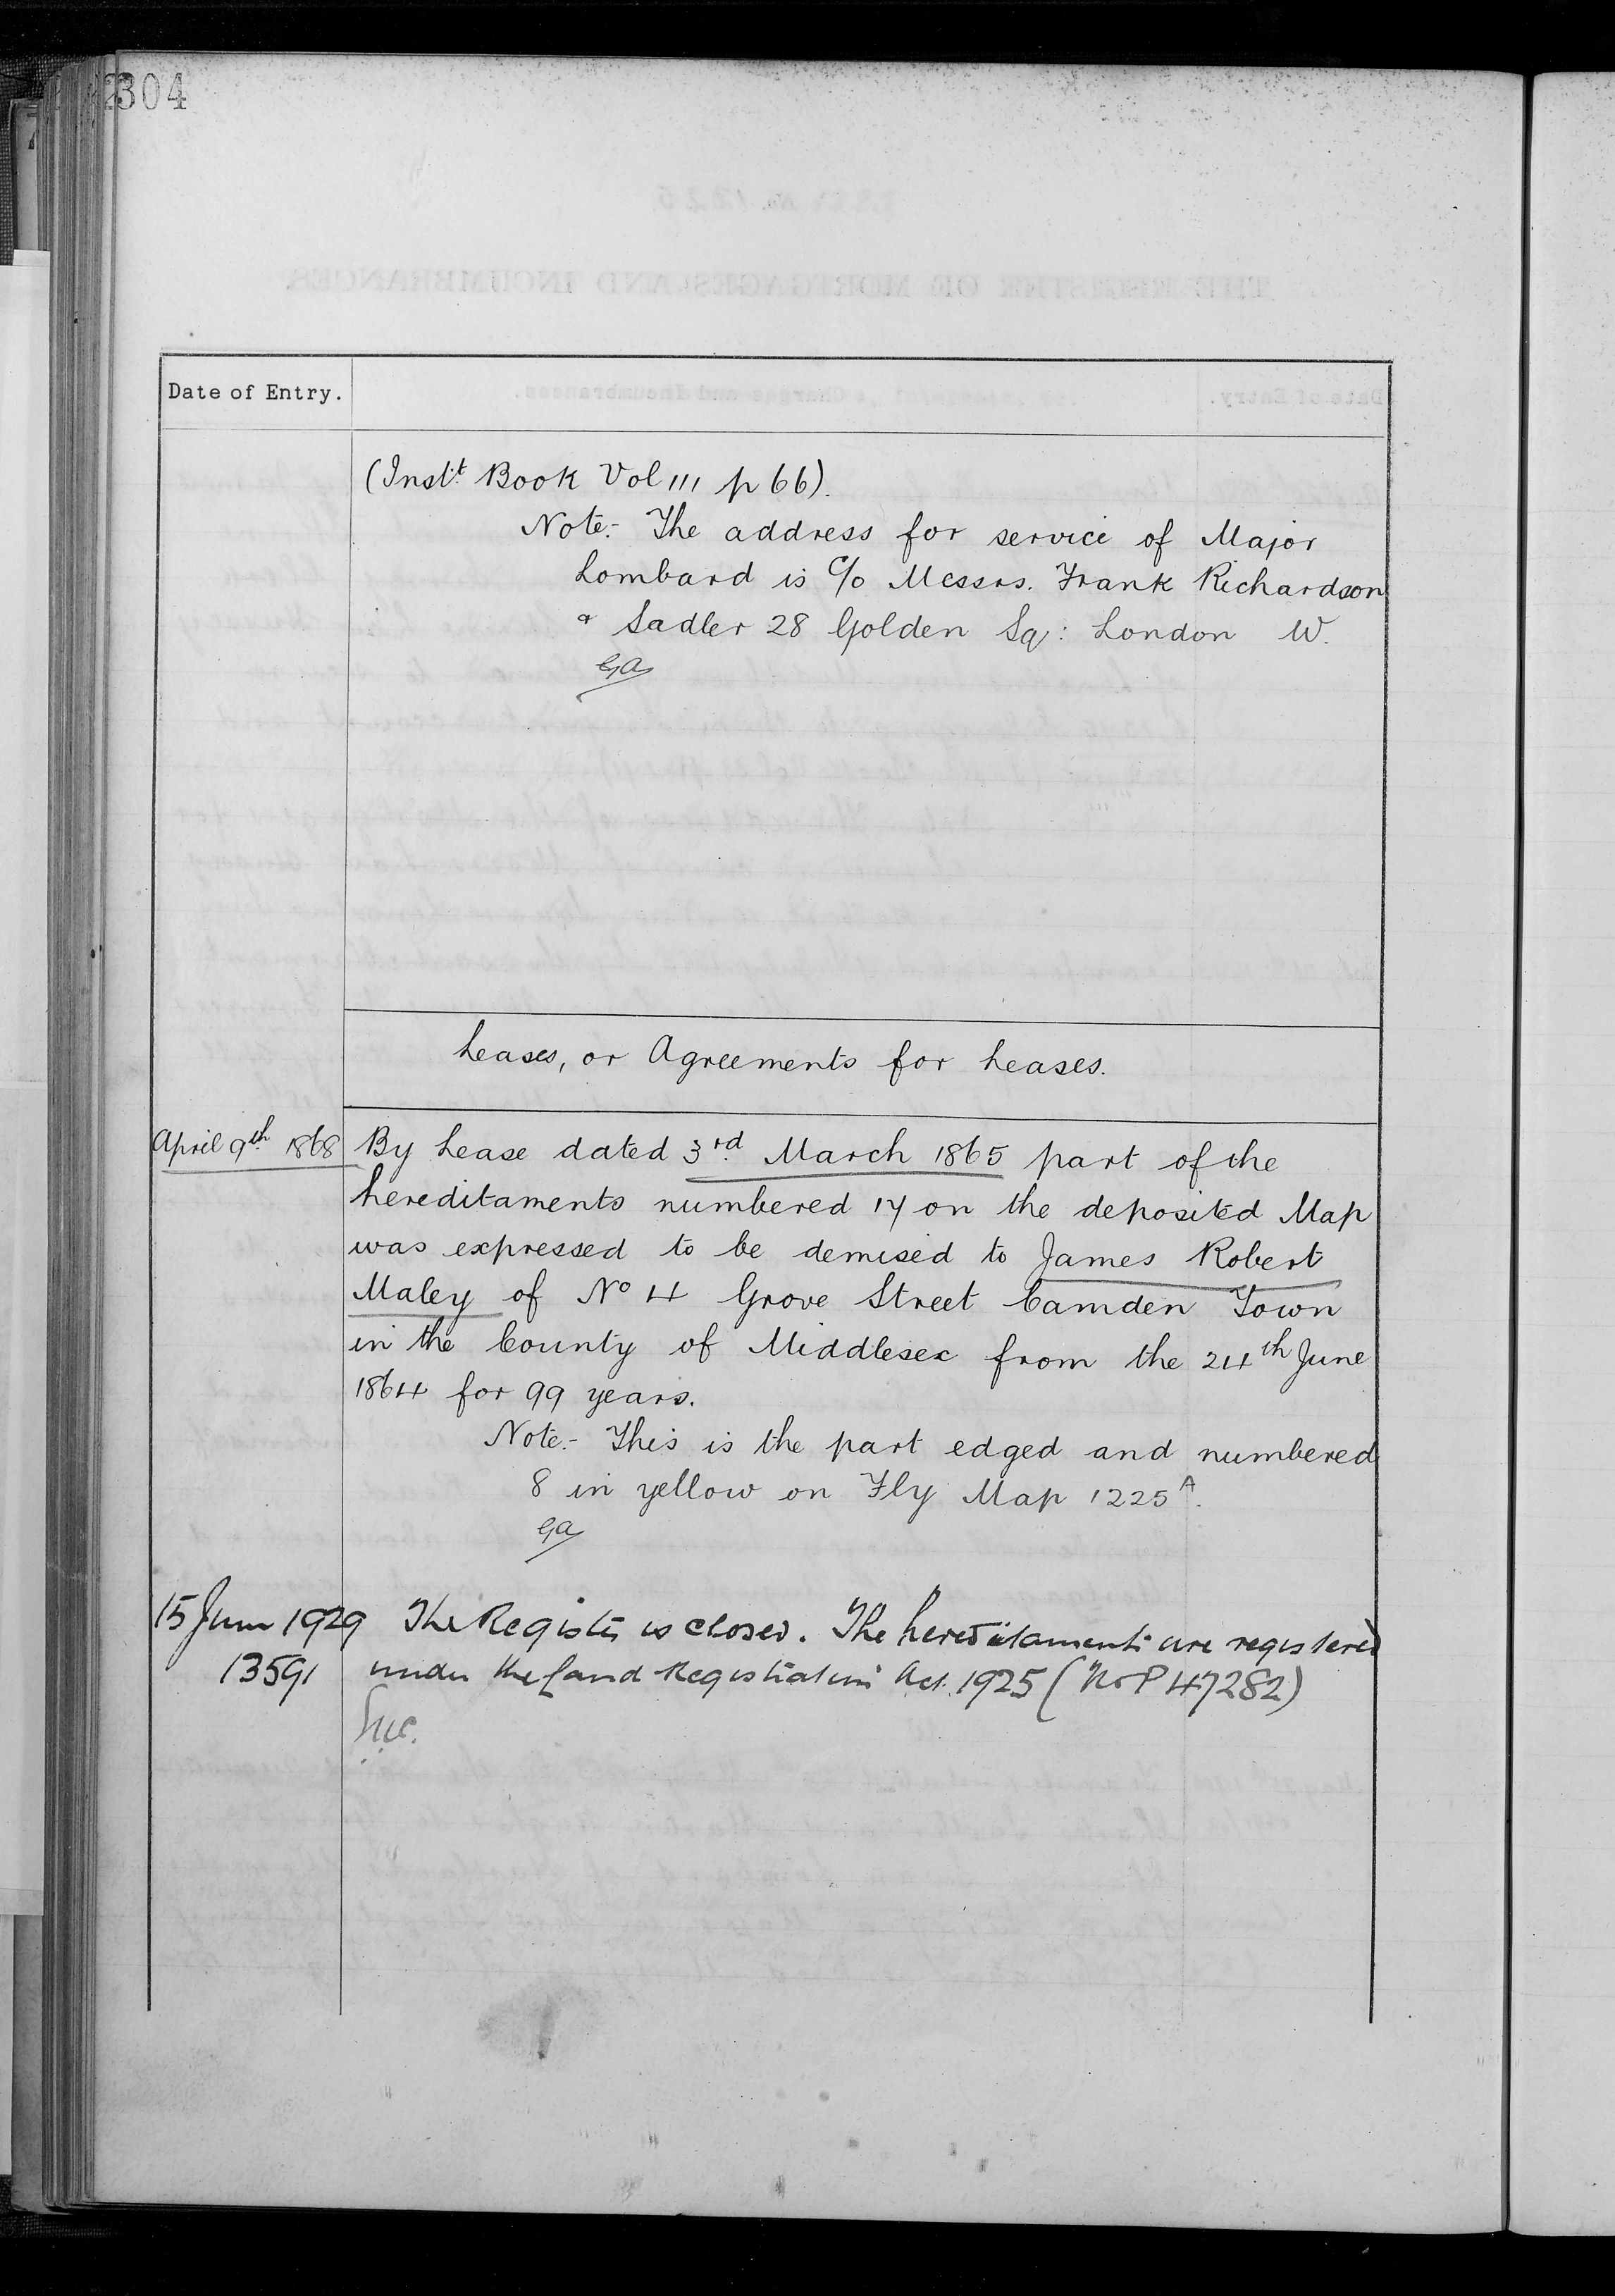 304
Date of Entry.
(Instt. Book Vol III p 66).
Note:- The address for service of Major
Lombard is c/o Messrs. Frank Richardson
& Sadler 28 Golden Sq: London W.
Leases, or Agreements for Leases.
April 9th 1868
By Lease dated 3rd March 1865 part of the
hereditaments numbered 17 on the deposited Map
was expressed to be demised to James Robert
Maley of No 4 Grove Street Camden Town
in the County of Middlesex from the 24th June
1864 for 99 years.
Note:- This is the part edged and numbered
8 in yellow on Fly Map 1225A.
15 June 1929 The Register is closed. The hereditaments are registered
13591 under the Land Registration Act. 1925 (No P 47282)